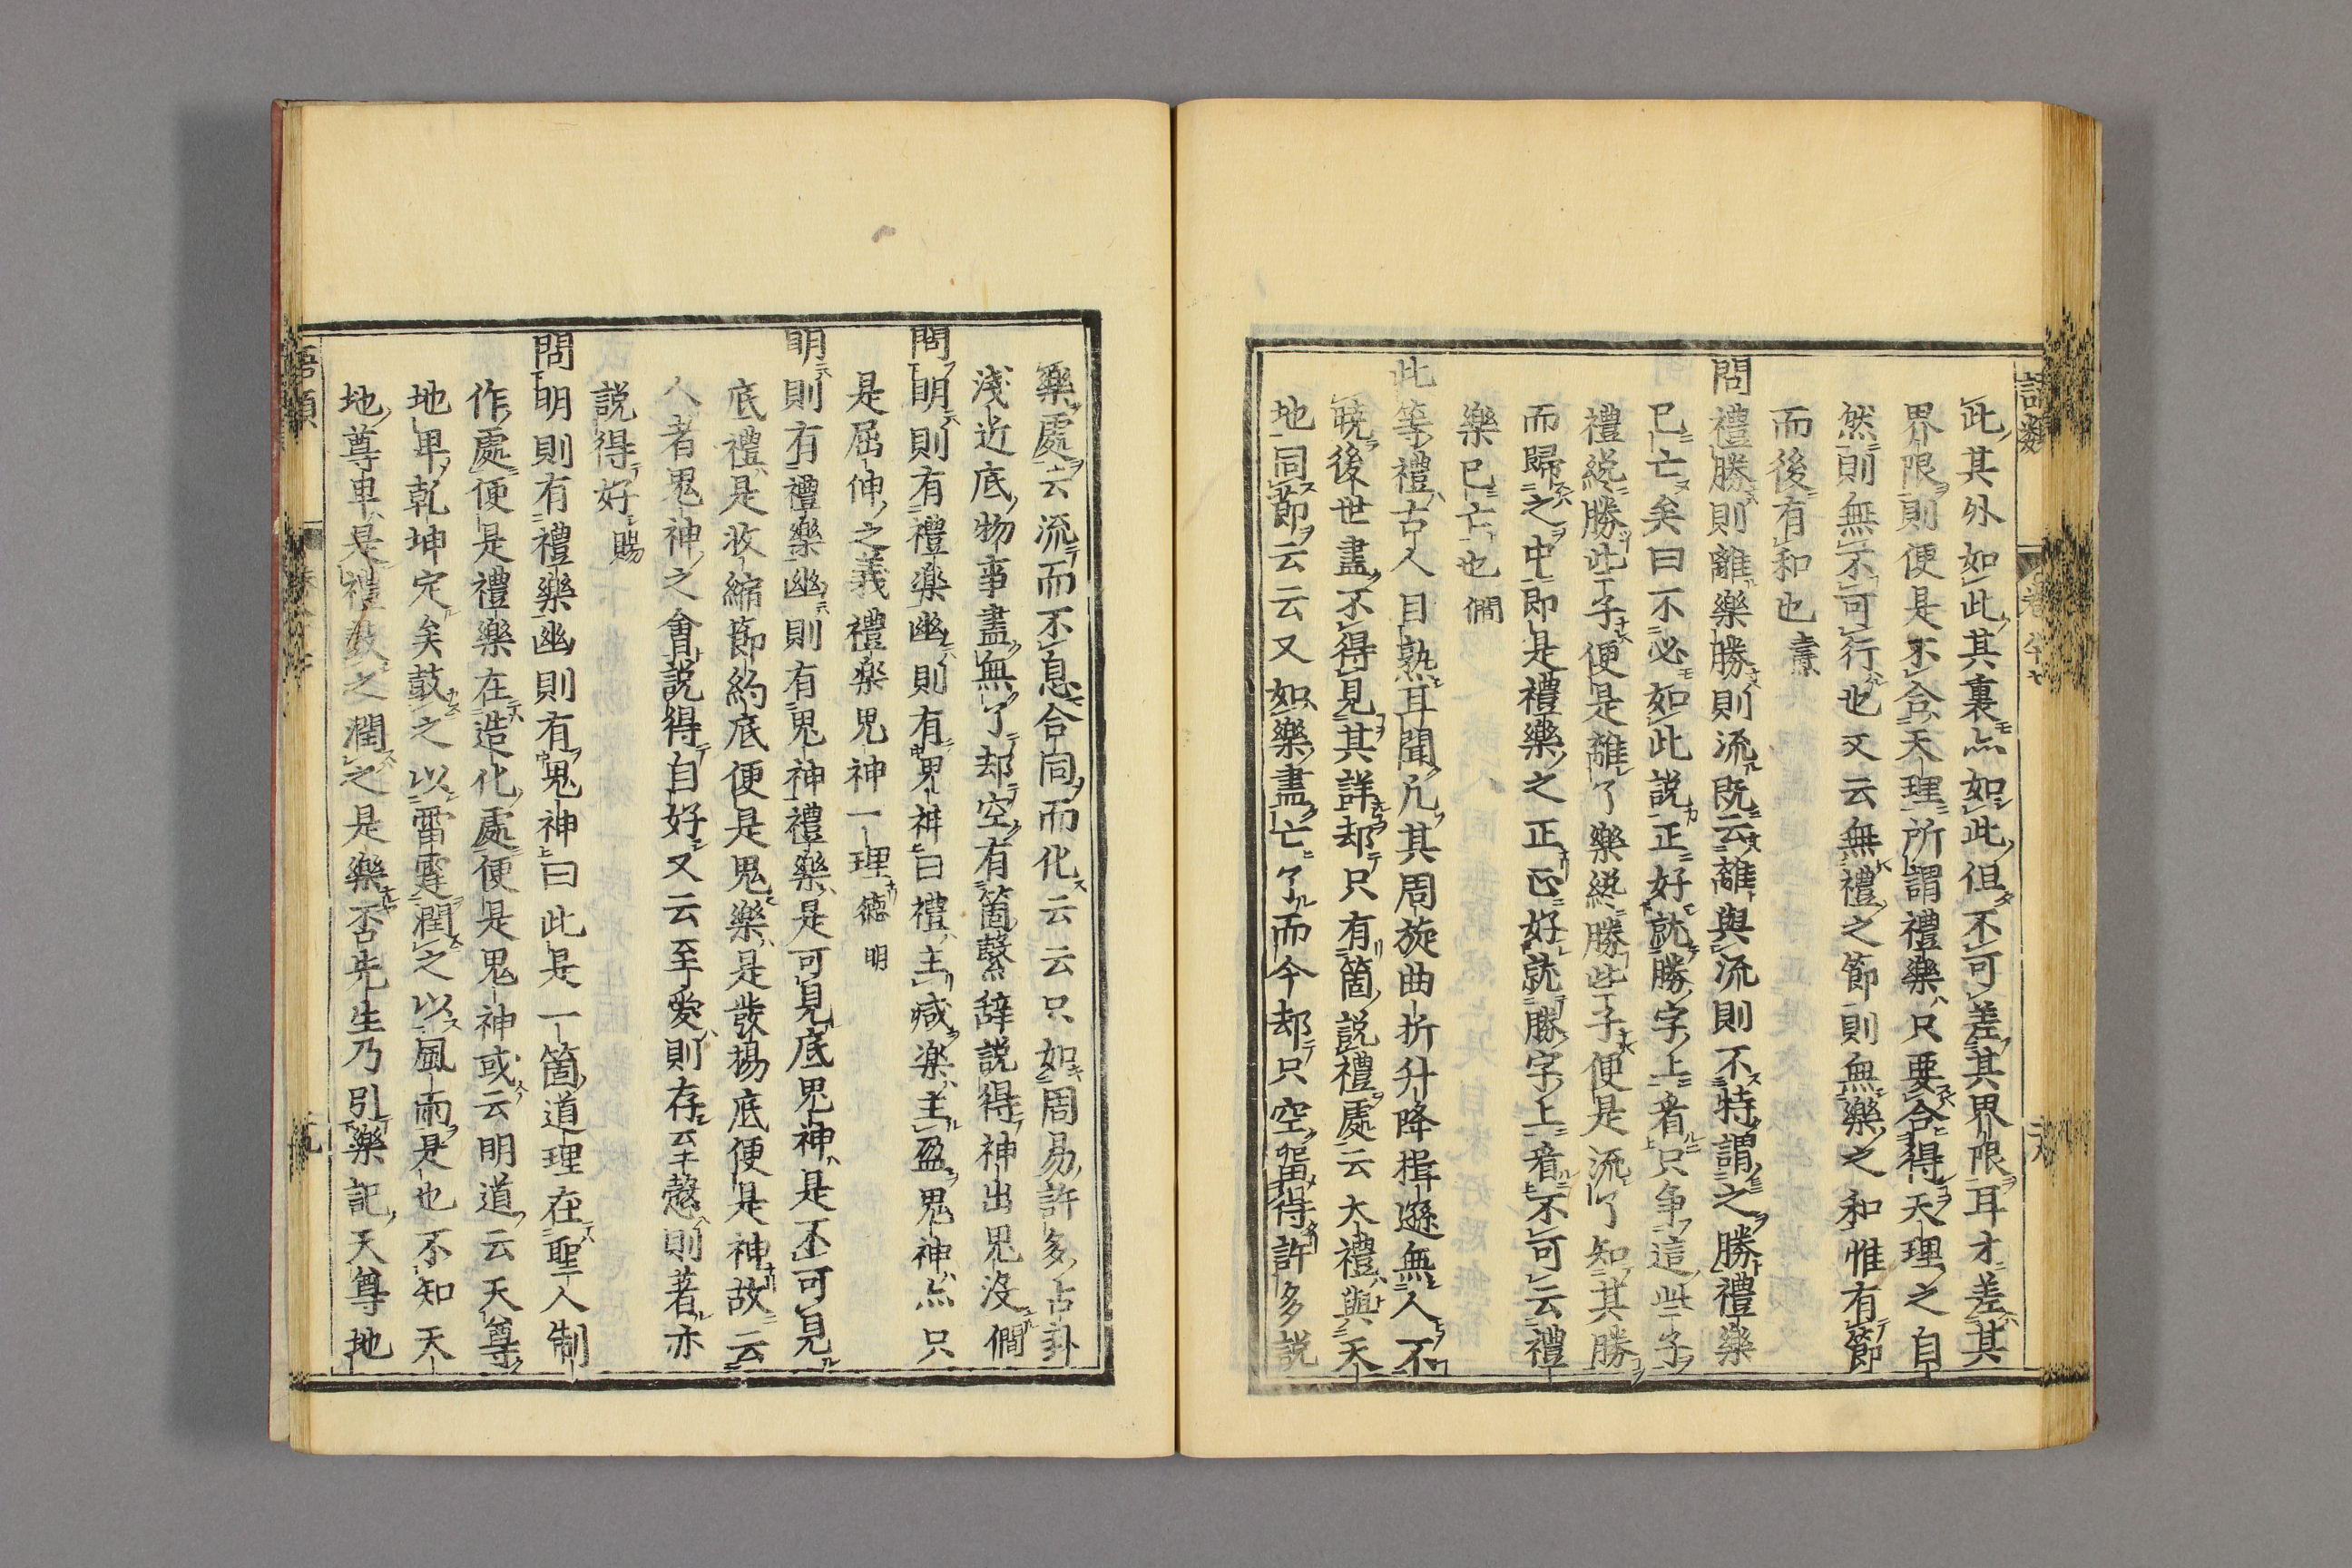 此其外如此其裏亦如此但不可差其界限耳才差其
界限則便是不合天理所謂禮樂只要合得天理之自
然則無不可行也又云無禮之節則無樂之和惟有節
而後有和也燾
問禮勝則離樂勝則流既云離與流則不特謂之勝禮樂
已亡矣曰不必如此說正好就勝字上看只争這些子
禮緫勝些子便是離了樂緫勝些子便是流了知其勝
而歸之中即是禮樂之正正好就勝字上看不可云禮
樂已亡也僩
此等禮古人目熟耳聞凢其周旋曲折升降揖遜無人不
曉後世盡不得見其詳却只有箇說禮處云大禮與天
地同節云云又如樂盡亡了而今却只空留得許多說
樂處云流而不息合同而化云云只如周易許多占卦
淺近底物事盡無了却空有箇繫辞說得神出鬼没僩
問明則有禮樂幽則有鬼神曰禮主减楽主盈鬼神亦只
是屈伸之義禮樂鬼神一理德明
明則有禮樂幽則有鬼神禮樂是可見底鬼神是不可見
底禮是收縮節約底便是鬼樂是發揚底便是神故云
人者鬼神之會說得自好又云至愛則存至愨則著亦
說得好賜
問明則有禮樂幽則有鬼神曰此是一箇道理在聖人制
作處便是禮樂在造化處便是鬼神或云明道云天尊
地卑乾坤定矣鼓之以雷霆潤之以風雨是也不知天
地尊卑是禮鼓之潤之是樂否先生乃引樂記天尊地